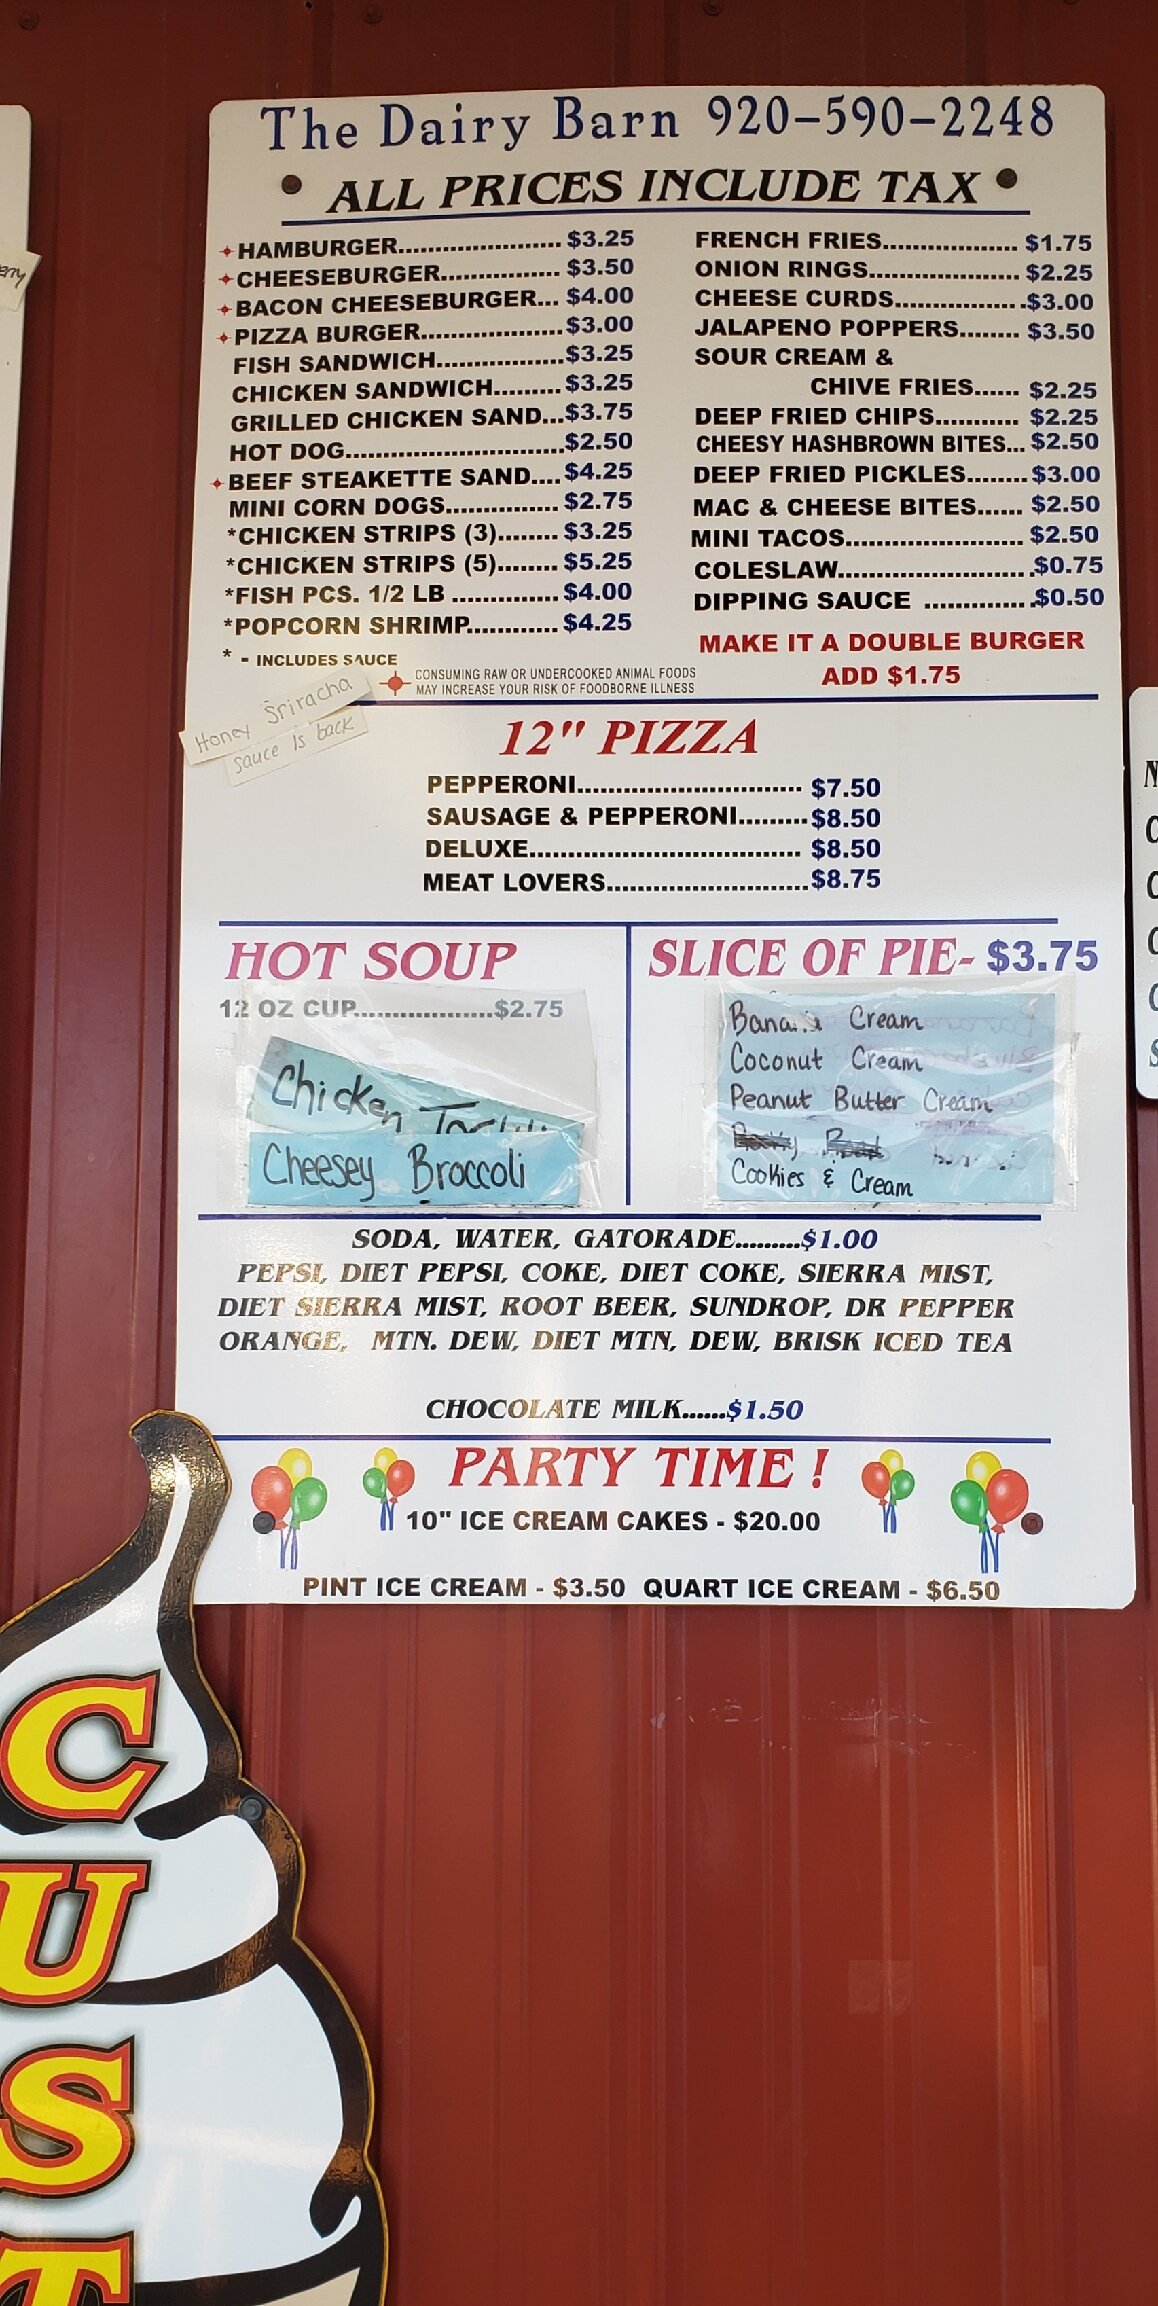 The Dairy Barn 920-590-2248
• ALL PRICES INCLUDE TAX •
HAMBURGER.................... $3.25
CHEESEBURGER............... $3.50
BACON CHEESEBURGER... $4.00
PIZZA BURGER..................$3.00
FISH SANDWICH................$3.25
CHICKEN SANDWICH.........$3.25
GRILLED CHICKEN SAND...$3.75
HOT DOG............................$2.50
BEEF STEAKETTE SAND....$4.25
MINI CORN DOGS.............. $2.75
*CHICKEN STRIPS (3)........ $3.25
*CHICKEN STRIPS (5)........ $5.25
*FISH PCS. 1/2 LB ............. $4.00
*POPCORN SHRIMP............ $4.25
* - INCLUDES SAUCE
CONSUMING RAW OR UNDERCOOKED ANIMAL FOODS
MAY INCREASE YOUR RISK OF FOODBORNE ILLNESS
Honey Sriracha
Sauce Is back
FRENCH FRIES................. $1.75
ONION RINGS................... $2.25
CHEESE CURDS................$3.00
JALAPENO POPPERS........ $3.50
SOUR CREAM &
CHIVE FRIES...... $2.25
DEEP FRIED CHIPS........... $2.25
CHEESY HASHBROWN BITES... $2.50
DEEP FRIED PICKLES........ $3.00
MAC & CHEESE BITES...... $2.50
MINI TACOS....................... $2.50
COLESLAW.........................$0.75
DIPPING SAUCE ..............$0.50
MAKE IT A DOUBLE BURGER
ADD $1.75
12" PIZZA
PEPPERONI............................. $7.50
SAUSAGE & PEPPERONI.........$8.50
DELUXE................................... $8.50
MEAT LOVERS..........................$8.75
HOT SOUP
12 OZ CUP...................$2.75
Chicken
Cheesey Broccoli
SLICE OF PIE- $3.75
Banana Cream
Coconut Cream
Peanut Butter Cream
Cookies & Cream
SODA, WATER, GATORADE.........$1.00
PEPSI, DIET PEPSI, COKE, DIET COKE, SIERRA MIST,
DIET SIERRA MIST, ROOT BEER, SUNDROP, DR PEPPER
ORANGE, MTN. DEW, DIET MTN, DEW, BRISK ICED TEA
CHOCOLATE MILK......$1.50
PARTY TIME !
10" ICE CREAM CAKES - $20.00
PINT ICE CREAM - $3.50 QUART ICE CREAM - $6.50
C
U
S
T